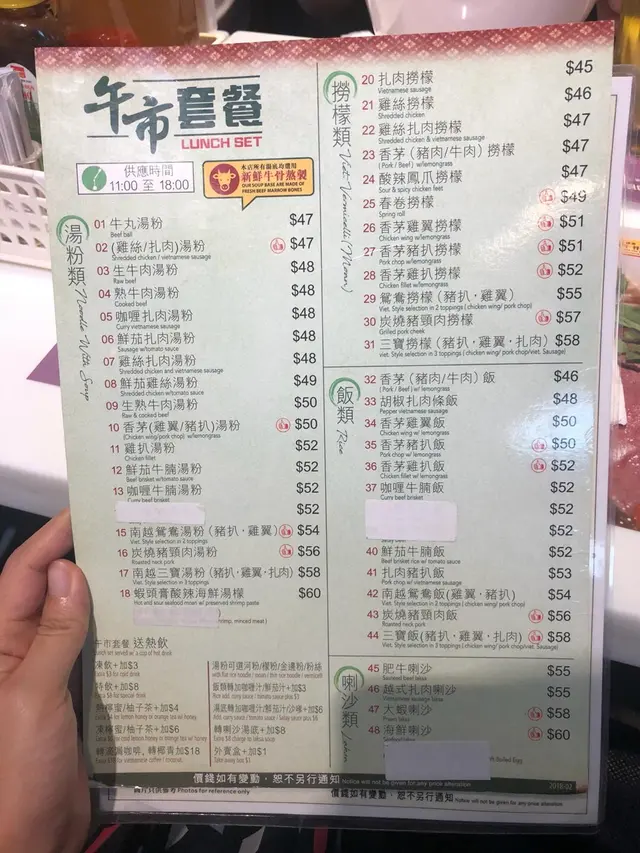 午市套餐
LUNCH SET
供應時間
11:00 至 18:00
本店所有湯底均選用
新鮮牛骨熬製
OUR SOUP BASE ARE MADE OF
FRESH BEEF MARROW BONES
湯粉類 Noodle With Soup
01 牛丸湯粉 $47
Beef ball
02 (雞絲/扎肉)湯粉 $47
Shredded chicken / vietnamese sausage
03 生牛肉湯粉 $48
Raw beef
04 熟牛肉湯粉 $48
Cooked beef
05 咖喱扎肉湯粉 $48
Curry vietnamese sausage
06 鮮茄扎肉湯粉 $48
Sausage w/tomato sauce
07 雞絲扎肉湯粉 $48
Shredded chicken and vietnamese sausage
08 鮮茄雞絲湯粉 $49
Shredded chicken w/tomato sauce
09 生熟牛肉湯粉 $50
Raw & cooked beef
10 香茅(雞翼/豬扒)湯粉 $50
(Chicken wing/pork chop) w/lemongrass
11 雞扒湯粉 $52
Chicken fillet
12 鮮茄牛腩湯粉 $52
Beef brisket w/tomato sauce
13 咖喱牛腩湯粉 $52
Curry beef brisket
$52
15 南越鴛鴦湯粉 (豬扒 · 雞翼) $54
Viet. Style selection in 2 toppings
16 炭燒豬頸肉湯粉 $56
Roasted neck pork
17 南越三寶湯粉 (豬扒 · 雞翼 · 扎肉) $58
Viet. Style selection in 3 toppings
18 蝦頭膏酸辣海鮮湯檬 $60
Hot and sour seafood moan w/ preserved shrimp paste
午市套餐 送熱飲
凍飲 +加$3
特飲 +加$8
熱檸蜜/柚子茶 +加$4
凍檸蜜/柚子茶 +加$6
轉滴漏咖啡, 轉椰青加$18
湯粉可選河粉/檬粉/金邊粉/粉絲
飯類轉加咖喱汁/鮮茄汁+加$3
湯底轉加咖喱汁/鮮茄汁/沙嗲+加$6
轉喇沙湯底+加$8
外賣盒+加$1
Take away box $1
撈檬類 Viet. Vermicelli (Moan)
20 扎肉撈檬 $45
Vietnamese sausage
21 雞絲撈檬 $46
Shredded chicken
22 雞絲扎肉撈檬 $47
Shredded chicken & vietnamese sausage
23 香茅 (豬肉/牛肉) 撈檬 $47
(Pork / Beef) w/lemongrass
24 酸辣鳳爪撈檬 $47
Sour & spicy chicken feet
25 春卷撈檬 $49
Spring roll
26 香茅雞翼撈檬 $51
Chicken wing w/lemongrass
27 香茅豬扒撈檬 $51
Pork chop w/lemongrass
28 香茅雞扒撈檬 $52
Chicken fillet w/lemongrass
29 鴛鴦撈檬 (豬扒 · 雞翼) $55
Viet. Style selection in 2 toppings (chicken wing/ pork chop)
30 炭燒豬頸肉撈檬 $57
Grilled pork cheek
31 三寶撈檬 (豬扒 · 雞翼 · 扎肉) $58
viet. Style selection in 3 toppings (chicken wing/ pork chop/viet. Sausage)
飯類 Rice
32 香茅 (豬肉/牛肉) 飯 $46
(Pork / Beef) w/lemongrass
33 胡椒扎肉條飯 $48
Pepper vietnamese sausage
34 香茅雞翼飯 $50
Chicken wing w/ lemongrass
35 香茅豬扒飯 $50
Pork chop w/lemongrass
36 香茅雞扒飯 $52
Chicken fillet w/ lemongrass
37 咖喱牛腩飯 $52
Curry beef brisket
$52
$52
40 鮮茄牛腩飯 $52
Beef brisket rice w/tomato sauce
41 扎肉豬扒飯 $53
Pork chop w/ vietnamese sausage
42 南越鴛鴦飯(雞翼 · 豬扒) $54
Viet. Style selection in 2 toppings (chicken wing/ pork chop)
43 炭燒豬頸肉飯 $56
Roasted neck pork
44 三寶飯(豬扒 · 雞翼 · 扎肉) $58
喇沙類 Laksa
45 肥牛喇沙 $55
46 越式扎肉喇沙 $55
Vietnamese sausage laksa
47 大蝦喇沙 $58
Prawn laksa
48 海鮮喇沙 $60
價錢如有變動 · 恕不另行通知 Notice will not be given for any price alteration
2018.03
Photos for reference only
價錢如有變動 · 恕不另行通知 Notice will not be given for any price alteration